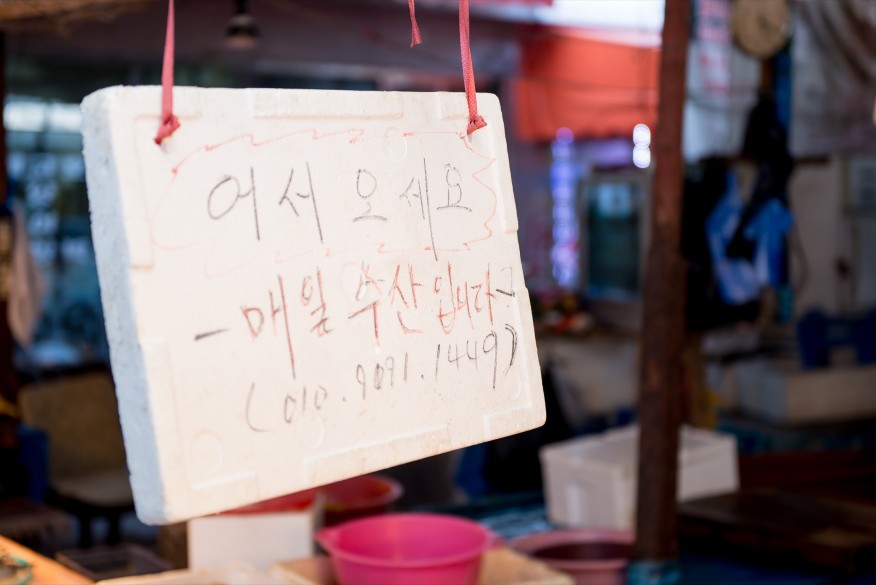 어서 오세요
- 매일 수산 입니다 -
(010.9091.1449)